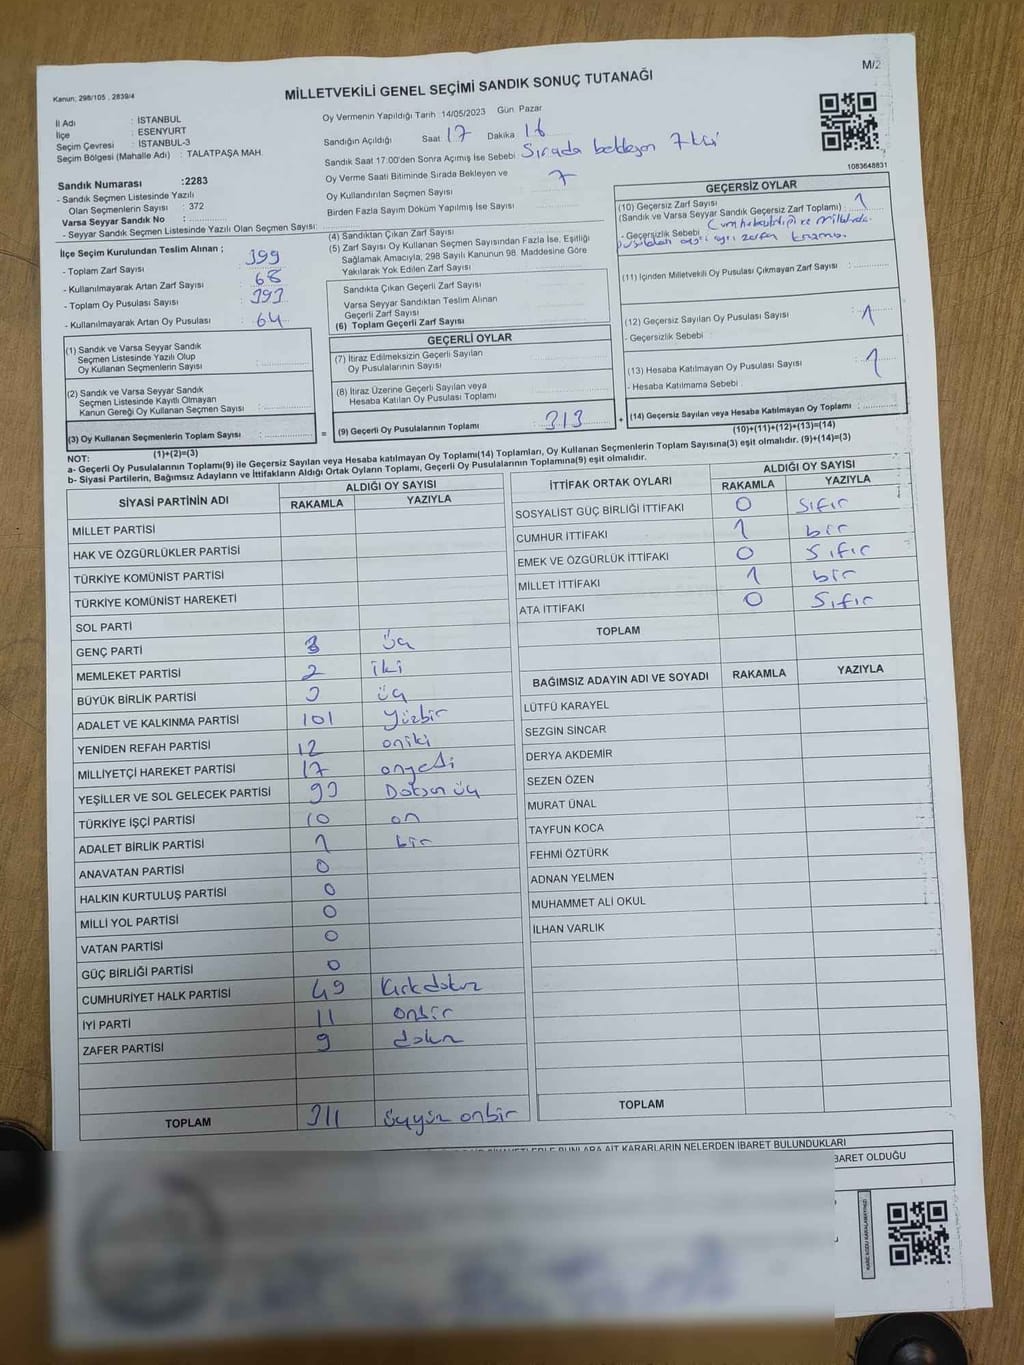 M/2
Kanun, 298/105 , 2839/4
MİLLETVEKİLİ GENEL SEÇİMİ SANDIK SONUÇ TUTANAĞI
İl Adı : İSTANBUL
İlçe : ESENYURT
Seçim Çevresi : İSTANBUL-3
Seçim Bölgesi (Mahalle Adı) : TALATPAŞA MAH.
Sandık Numarası :2283
- Sandık Seçmen Listesinde Yazılı
Olan Seçmenlerin Sayısı : 372
Varsa Seyyar Sandık No :
- Seyyar Seçmen Listesinde Yazılı Olan Seçmen Sayısı:
Oy Vermenin Yapıldığı Tarih :14/05/2023 Gün Pazar
Sandığın Açıldığı Saat 17 Dakika 16
Sandık Saat 17.00'den Sonra Açımış İse Sebebi : Sırada bekleyen 7 kişi
Oy Verme Saati Bitiminde Sırada Bekleyen ve
Oy Kullandırılan Seçmen Sayısı : 7
Birden Fazla Sayım Döküm Yapılmış İse Sayısı :
1083648831
İlçe Seçim Kurulundan Teslim Alınan ;
- Toplam Zarf Sayısı : 399
- Kullanılmayarak Artan Zarf Sayısı : 68
- Toplam Oy Pusulası Sayısı : 393
- Kullanılmayarak Artan Oy Pusulası : 64
(1) Sandık ve Varsa Seyyar Sandık
Seçmen Listesinde Yazılı Olup
Oy Kullanan Seçmenlerin Sayısı :
(2) Sandık ve Varsa Seyyar Sandık
Seçmen Listesinde Kayıtlı Olmayan
Kanun Gereği Oy Kullanan Seçmen Sayısı :
(3) Oy Kullanan Seçmenlerin Toplam Sayısı :
(1)+(2)=(3)
(4) Sandıktan Çıkan Zarf Sayısı
(5) Zarf Sayısı Oy Kullanan Seçmen Sayısından Fazla İse, Eşitliği
Sağlamak Amacıyla, 298 Sayılı Kanunun 98. Maddesine Göre
Yakılarak Yok Edilen Zarf Sayısı
Sandıkta Çıkan Geçerli Zarf Sayısı
Varsa Seyyar Sandıktan Teslim Alınan
Geçerli Zarf Sayısı
(6) Toplam Geçerli Zarf Sayısı
GEÇERLİ OYLAR
(7) İtiraz Edilmeksizin Geçerli Sayılan
Oy Pusulalarının Sayısı
(8) İtiraz Üzerine Geçerli Sayılan veya
Hesaba Katılan Oy Pusulası Toplamı
= (9) Geçerli Oy Pusulalarının Toplamı : 313 +
GEÇERSİZ OYLAR
(10) Geçersiz Zarf Sayısı
(Sandık ve Varsa Seyyar Sandık Geçersiz Zarf Toplamı) : 1
- Geçersizlik Sebebi : Cumhurbaşkanlığı ve Milletvek.
pusulaları ayrı ayrı zarfa konmuş.
(11) İçinden Milletvekili Oy Pusulası Çıkmayan Zarf Sayısı :
(12) Geçersiz Sayılan Oy Pusulası Sayısı : 1
- Geçersizlik Sebebi :
(13) Hesaba Katılmayan Oy Pusulası Sayısı : 1
- Hesaba Katılmama Sebebi :
(14) Geçersiz Sayılan veya Hesaba Katılmayan Oy Toplamı :
(10)+(11)+(12)+(13)=(14)
NOT:
a- Geçerli Oy Pusulalarının Toplamı(9) ile Geçersiz Sayılan veya Hesaba katılmayan Oy Toplamı(14) Toplamları, Oy Kullanan Seçmenlerin Toplam Sayısına(3) eşit olmalıdır. (9)+(14)=(3)
b- Siyasi Partilerin, Bağımsız Adayların ve İttifakların Aldığı Ortak Oyların Toplamı, Geçerli Oy Pusulalarının Toplamına(9) eşit olmalıdır.
SİYASİ PARTİNİN ADI ALDIĞI OY SAYISI
RAKAMLA YAZIYLA
MİLLET PARTİSİ
HAK VE ÖZGÜRLÜKLER PARTİSİ
TÜRKİYE KOMÜNİST PARTİSİ
TÜRKİYE KOMÜNİST HAREKETİ
SOL PARTİ
GENÇ PARTİ 3 üç
MEMLEKET PARTİSİ 2 iki
BÜYÜK BİRLİK PARTİSİ 3 üç
ADALET VE KALKINMA PARTİSİ 101 yüzbir
YENİDEN REFAH PARTİSİ 12 oniki
MİLLİYETÇİ HAREKET PARTİSİ 17 onyedi
YEŞİLLER VE SOL GELECEK PARTİSİ 93 Doksan üç
TÜRKİYE İŞÇİ PARTİSİ 10 on
ADALET BİRLİK PARTİSİ 1 bir
ANAVATAN PARTİSİ 0
HALKIN KURTULUŞ PARTİSİ 0
MİLLİ YOL PARTİSİ 0
VATAN PARTİSİ 0
GÜÇ BİRLİĞİ PARTİSİ 0
CUMHURİYET HALK PARTİSİ 49 kırkdokuz
İYİ PARTİ 11 onbir
ZAFER PARTİSİ 9 dokuz
TOPLAM 311 üçyüz onbir
İTTİFAK ORTAK OYLARI ALDIĞI OY SAYISI
RAKAMLA YAZIYLA
SOSYALİST GÜÇ BİRLİĞİ İTTİFAKI 0 sıfır
CUMHUR İTTİFAKI 1 bir
EMEK VE ÖZGÜRLÜK İTTİFAKI 0 sıfır
MİLLET İTTİFAKI 1 bir
ATA İTTİFAKI 0 sıfır
TOPLAM
BAĞIMSIZ ADAYIN ADI VE SOYADI RAKAMLA YAZIYLA
LÜTFÜ KARAYEL
SEZGİN SİNCAR
DERYA AKDEMİR
SEZEN ÖZEN
MURAT ÜNAL
TAYFUN KOCA
FEHMİ ÖZTÜRK
ADNAN YELMEN
MUHAMMET ALİ OKUL
İLHAN VARLIK
TOPLAM
BUNLARA AİT KARARLARIN NELERDEN İBARET BULUNDUKLARI
BARET OLDUĞU
KARE KODU KARALAMAYINIZ!